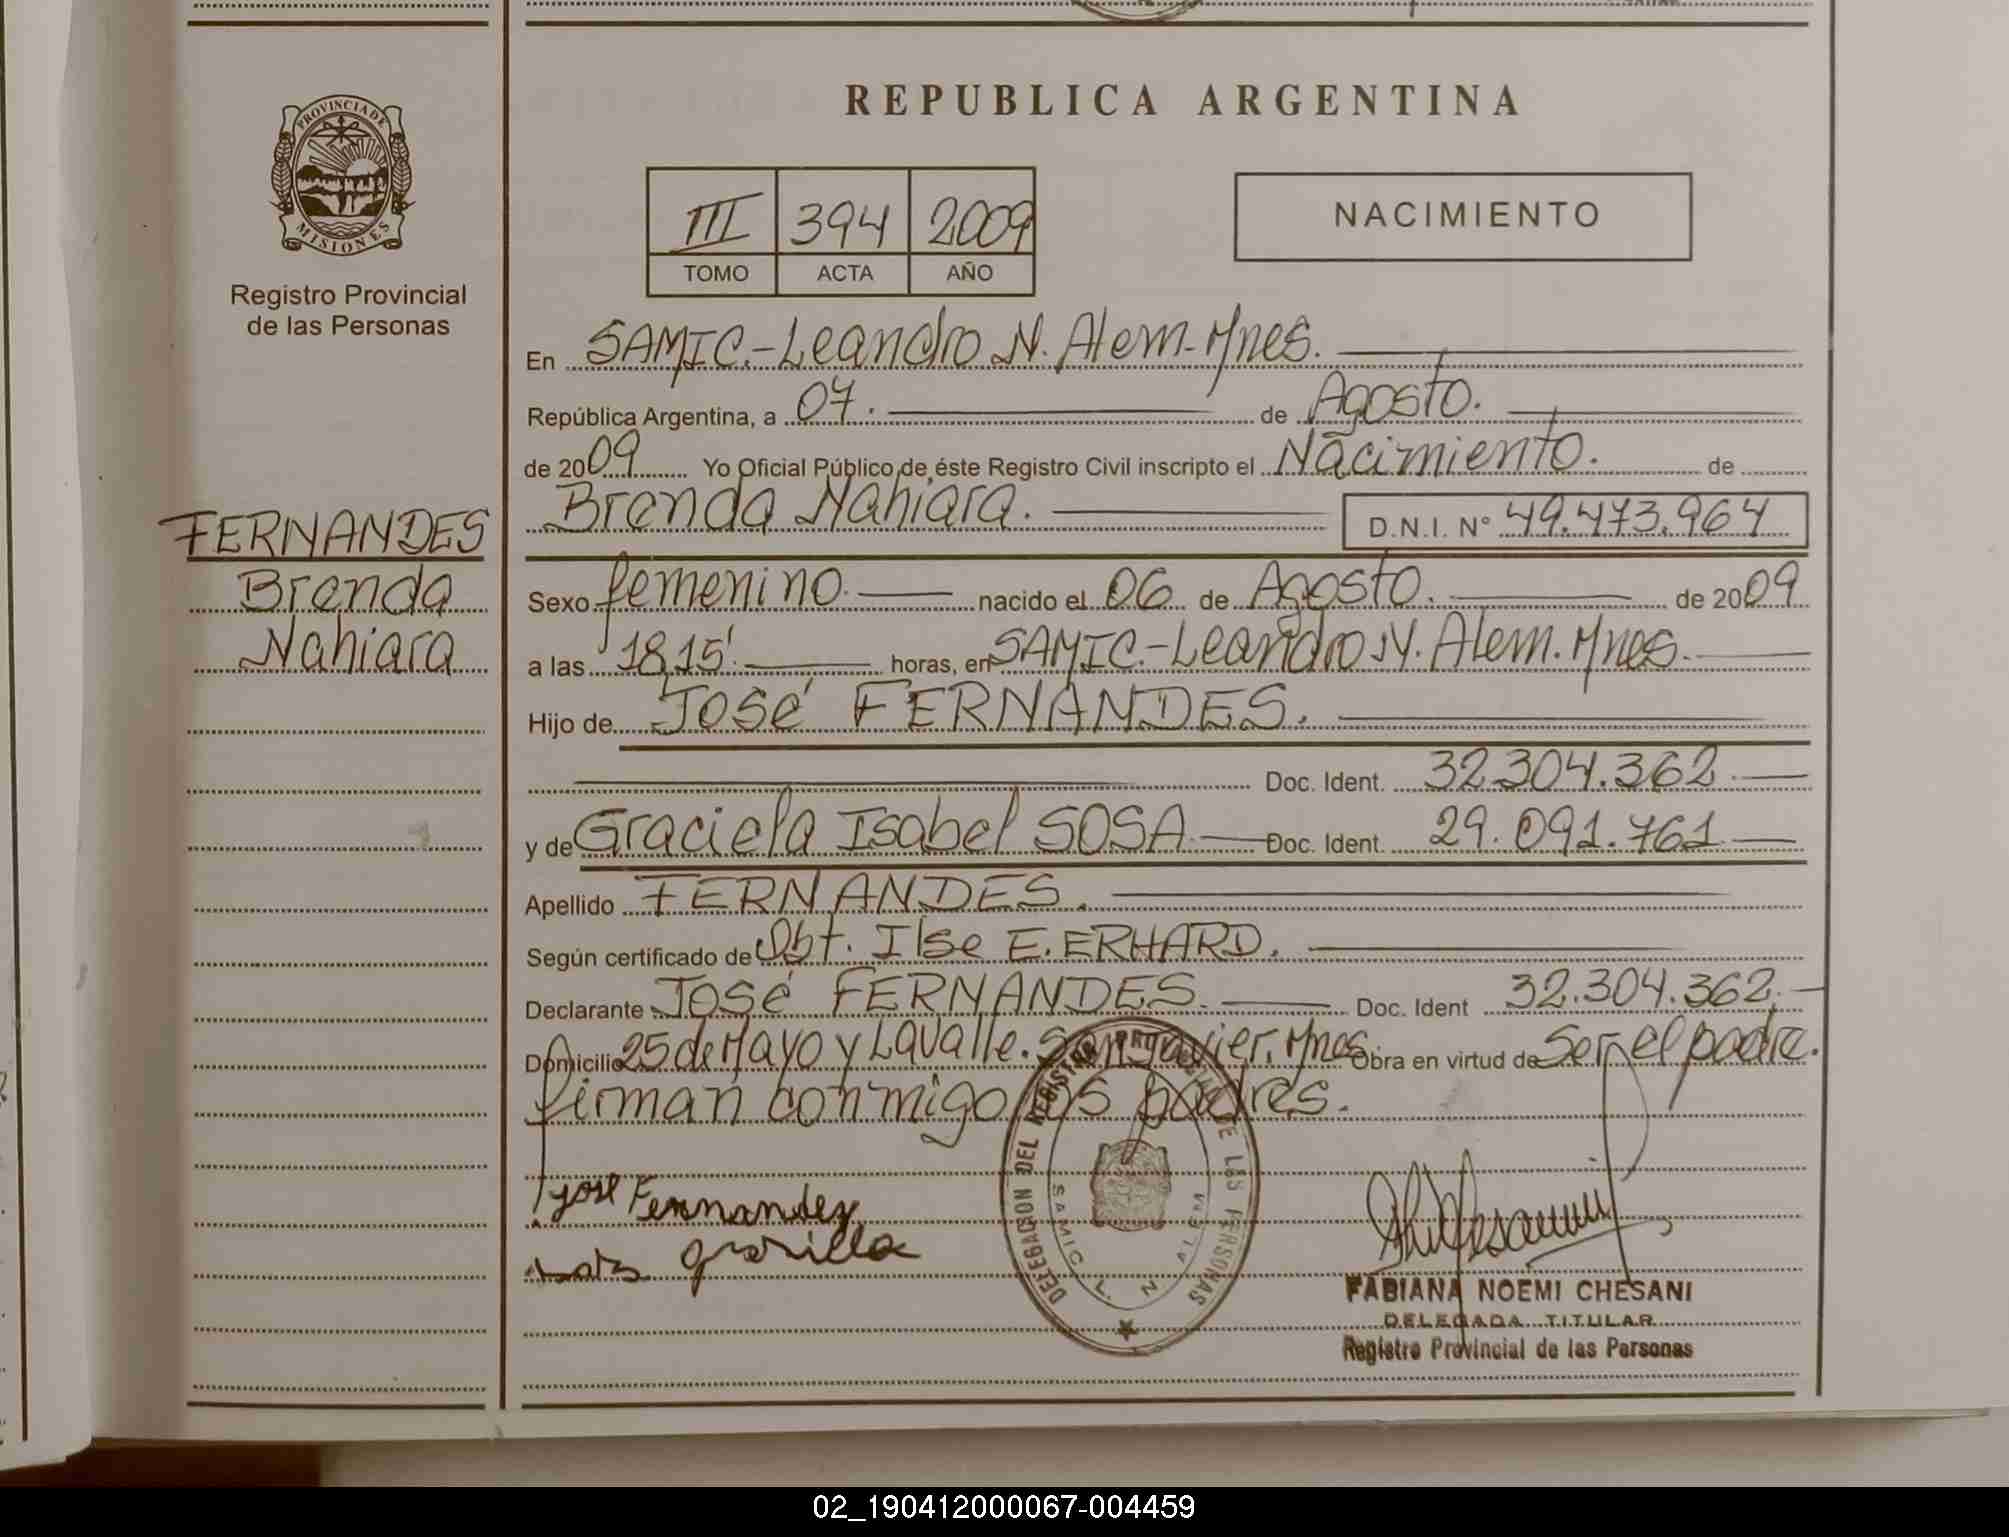 PROVINCIA DE
MISIONES
Registro Provincial
de las Personas
FERNANDES
Brenda
Nahiara
REPUBLICA ARGENTINA
III 394 2009
TOMO ACTA AÑO
NACIMIENTO
En SAMIC.-Leandro N. Alem-Mnes.
República Argentina, a 07. de Agosto.
de 2009 Yo Oficial Público de éste Registro Civil inscripto el Nacimiento. de
Brenda Nahiara. D.N.I. N° 49.473.964
Sexo femenino. nacido el 06 de Agosto. de 2009
a las 18,15' horas, en SAMIC.-Leandro N. Alem. Mnes.
Hijo de José FERNANDES.
Doc. Ident. 32.304.362
y de Graciela Isabel SOSA Doc. Ident. 29.091.761
Apellido FERNANDES.
Según certificado de Obt. Ilse E. ERHARD.
Declarante José FERNANDES. Doc. Ident 32.304.362.
Domicilio 25 de Mayo y Lavalle. San Javier. Mnes. Obra en virtud de Ser el padre.
firman conmigo los padres.
jose Fernandez
DELEGACION DEL REGISTRO PROVINCIAL DE LAS PERSONAS
SAMIC L. N. ALEM
FABIANA NOEMI CHESANI
DELEGADA TITULAR
Registro Provincial de las Personas
02_190412000067-004459